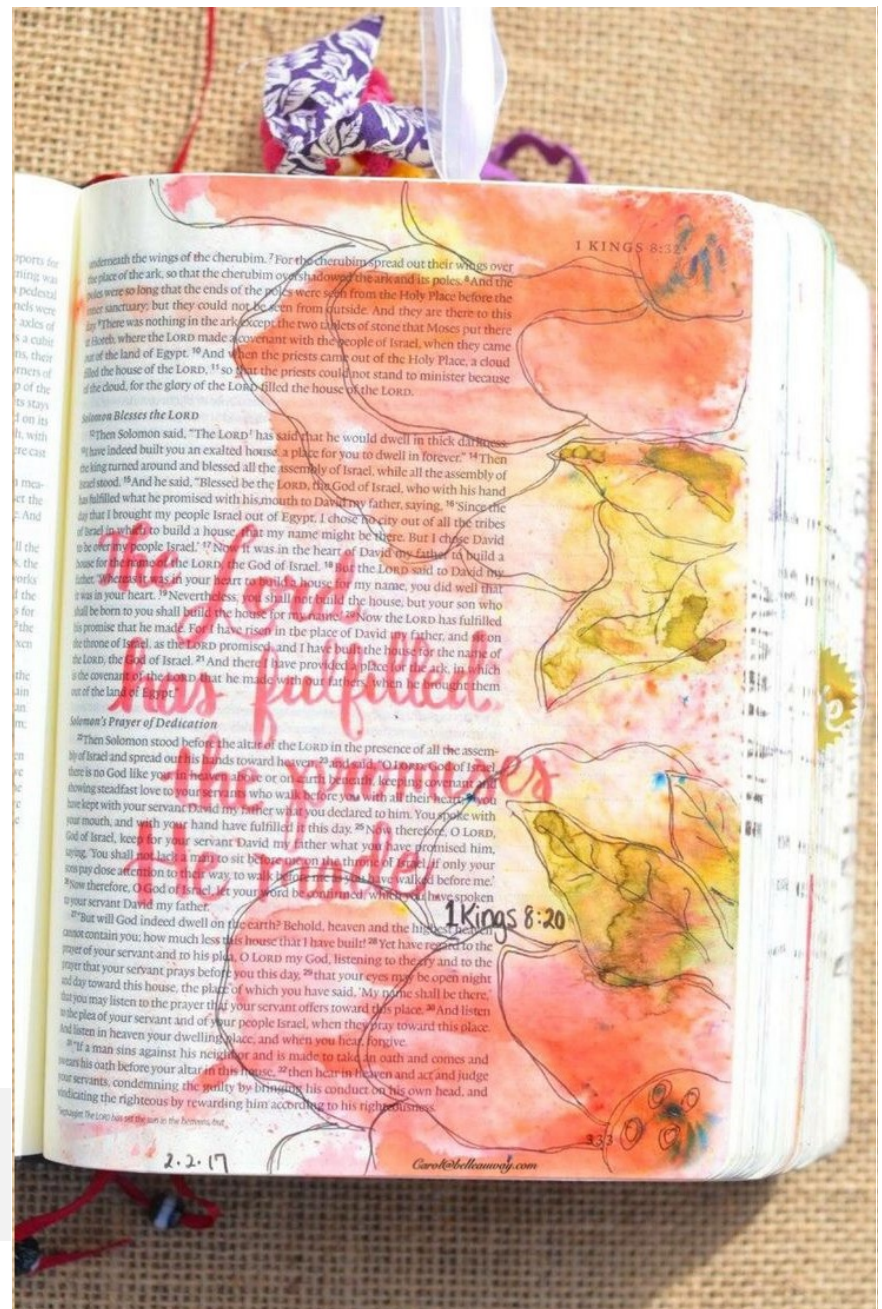 1 KINGS 8:32
underneath the wings of the cherubim. 7 For the cherubim spread out their wings over
the place of the ark, so that the cherubim overshadowed the ark and its poles. 8 And the
poles were so long that the ends of the poles were seen from the Holy Place before the
inner sanctuary; but they could not be seen from outside. And they are there to this
day. 9 There was nothing in the ark except the two tablets of stone that Moses put there
at Horeb, where the LORD made a covenant with the people of Israel, when they came
out of the land of Egypt. 10 And when the priests came out of the Holy Place, a cloud
filled the house of the LORD, 11 so that the priests could not stand to minister because
of the cloud, for the glory of the LORD filled the house of the LORD.
Solomon Blesses the LORD
12 Then Solomon said, "The LORD has said that he would dwell in thick darkness.
13 I have indeed built you an exalted house, a place for you to dwell in forever." 14 Then
the king turned around and blessed all the assembly of Israel, while all the assembly of
Israel stood. 15 And he said, "Blessed be the LORD, the God of Israel, who with his hand
has fulfilled what he promised with his mouth to David my father, saying, 16 'Since the
day that I brought my people Israel out of Egypt, I chose no city out of all the tribes
of Israel in which to build a house, that my name might be there. But I chose David
to be over my people Israel.' 17 Now it was in the heart of David my father to build a
house for the name of the LORD, the God of Israel. 18 But the LORD said to David my
father, 'Whereas it was in your heart to build a house for my name, you did well that
it was in your heart. 19 Nevertheless, you shall not build the house, but your son who
shall be born to you shall build the house for my name.' 20 Now the LORD has fulfilled
his promise that he made. For I have risen in the place of David my father, and sit on
the throne of Israel, as the LORD promised, and I have built the house for the name of
the LORD, the God of Israel. 21 And there I have provided a place for the ark, in which
is the covenant of the LORD that he made with our fathers, when he brought them
out of the land of Egypt."
Solomon's Prayer of Dedication
22 Then Solomon stood before the altar of the LORD in the presence of all the assem-
bly of Israel and spread out his hands toward heaven, 23 and said, "O LORD, God of Israel,
there is no God like you, in heaven above or on earth beneath, keeping covenant and
showing steadfast love to your servants who walk before you with all their heart; 24 you
have kept with your servant David my father what you declared to him. You spoke with
your mouth, and with your hand have fulfilled it this day. 25 Now therefore, O LORD,
God of Israel, keep for your servant David my father what you have promised him,
saying, 'You shall not lack a man to sit before me on the throne of Israel, if only your
sons pay close attention to their way, to walk before me as you have walked before me.'
26 Now therefore, O God of Israel, let your word be confirmed, which you have spoken
to your servant David my father.
27 "But will God indeed dwell on the earth? Behold, heaven and the highest heaven
cannot contain you; how much less this house that I have built! 28 Yet have regard to the
prayer of your servant and to his plea, O LORD my God, listening to the cry and to the
prayer that your servant prays before you this day, 29 that your eyes may be open night
and day toward this house, the place of which you have said, 'My name shall be there,'
that you may listen to the prayer that your servant offers toward this place. 30 And listen
to the plea of your servant and of your people Israel, when they pray toward this place.
And listen in heaven your dwelling place, and when you hear, forgive.
31 "If a man sins against his neighbor and is made to take an oath and comes and
swears his oath before your altar in this house, 32 then hear in heaven and act and judge
your servants, condemning the guilty by bringing his conduct on his own head, and
vindicating the righteous by rewarding him according to his righteousness.
The Lord
has fulfilled
the promises
He made
1 Kings 8:20
333
2.2.17
Carol@belleauway.com